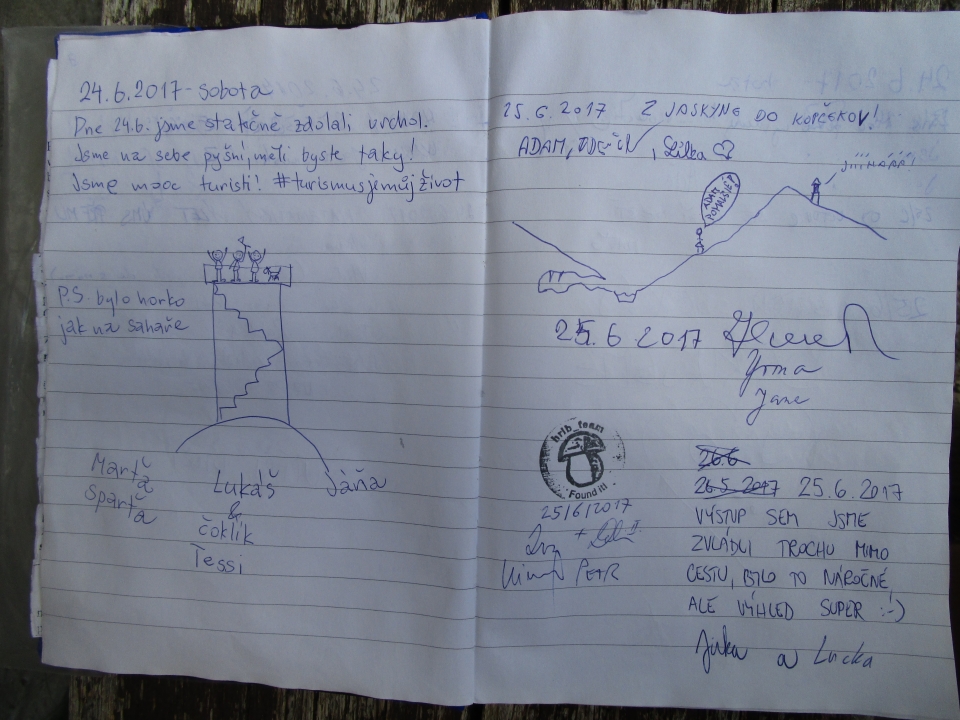 24.6.2017 - sobota
Dne 24.6. jsme statečně zdolali vrchol.
Jsme na sebe pyšní, měli byste taky!
Jsme moc turisti! #turismusjemůjživot
P.S. bylo horko
jak na sahaře
Marťa
Sparťa
Lukáš
&
čoklik
Tessi
Jáňa
25.6.2017 Z JASKYNE DO KOPČEKOV!
ADAM, , Lilka
JÍÍÍHÁÁÁ!
ADAM,
25.6 2017
Irma
Jane
brib_team
Found it!
25/6/2017
+
PETR
26.6
26.5.2017 25.6.2017
VÝSTUP SEM JSME
ZVLÁDLI TROCHU MIMO
CESTU, BYLO TO NÁROČNÉ,
ALE VÝHLED SUPER :-)
a Lucka